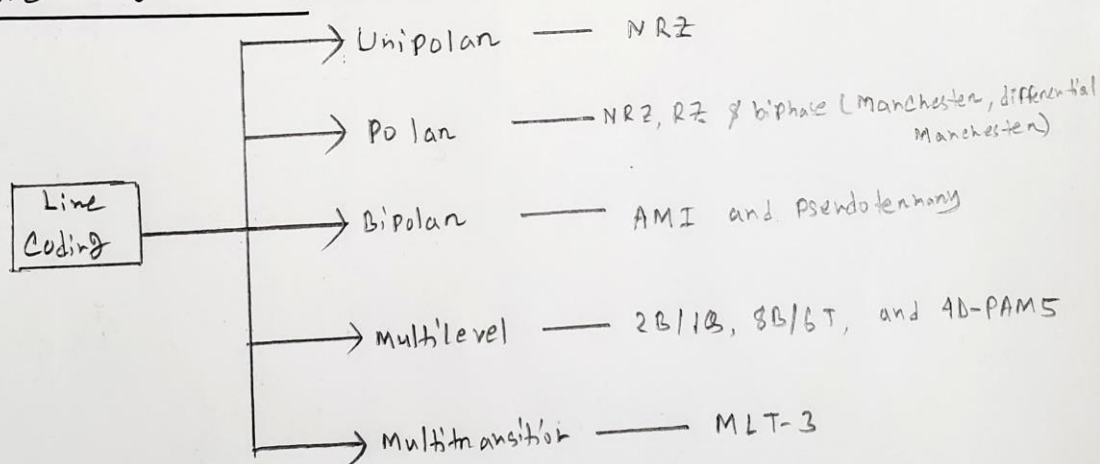 Unipolar — NRZ
Polar — NRZ, RZ & biphase (Manchester, differential
Manchester)
Line
Coding
Bipolar — AMI and Pseudoternary
Multilevel — 2B/1Q, 8B/6T, and 4D-PAM5
Multitransition — MLT-3